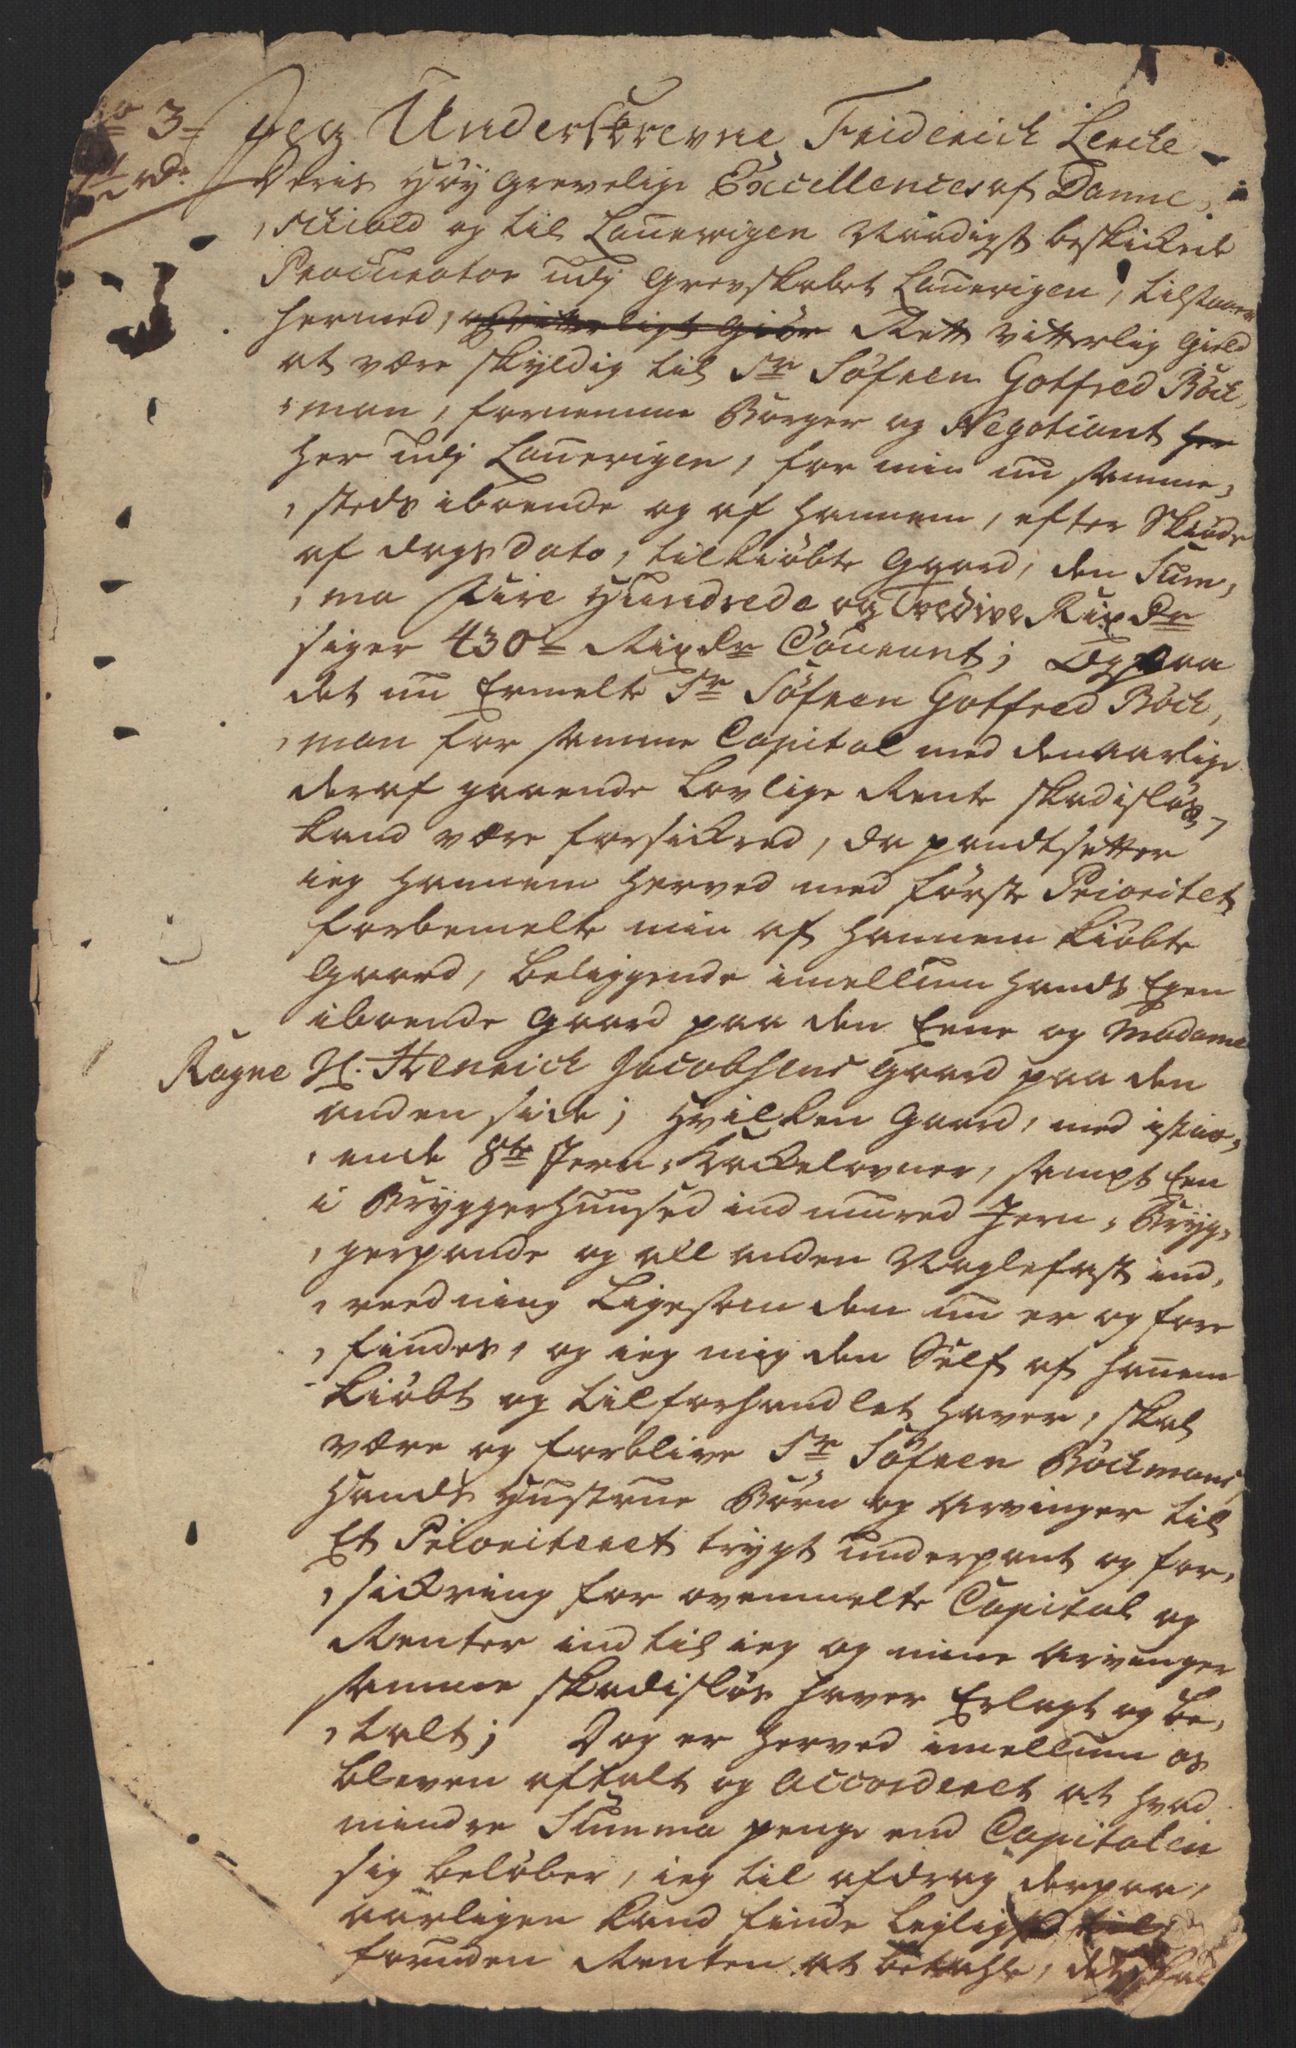 No 3
Jeg Underskrevne Friderich Lercke
Deris Høy Grevelige Excellences af Danne,
,schiold og til Lauervigen Naadigst beskikkede
Procurator udj Grevskabet Lauervigen, tilstaaer
hermed, og vitterligt giör Rett Vitterlig Gield
at være skyldig til Sr Söfren Gotfred Böck,
,man, fornemme Borger og Negotiant her
her udj Lauervigen, for min nu samme,
,steds iboende og af hannem, efter Skiöde
af dags dato, tilkiöbte Gaard, den Sum,
,ma Fire Hundrede og Tredive Rixdr
siger 430 Rixdr Courant; Og paa
det nu Ermelte Sr Söfren Gotfred Böck,
,man for samme Capital med den aarlige
deraf gaaende Lovlige Rente skadislös,
kand være forsickred, da pandtsetter
ieg hannem herved med förste Prioritet
forbemelte min af hannem kiöbte
Gaard, beliggende imellum hands Egen
iboende Gaard paa den Eene og Madame
Ragne H. Henrich Jacobsens Gaard paa den
anden side; Hvilken Gaard, med istaa,
,ende 8te Jern-Kackelovner, sampt Een
i Bryggerhuused indmured Jern, Bryg,
,gerpande og all anden Naglefast ind,
,reedning Ligesom den nu er og fore
,findes, og ieg mig den Self af hanem
kiöbt og tilforhandlet haver, skal
være og forblive Sr Söfren Böckmans
Hands Hustrue Börn og Arvinger til
Et Prioriteret trygt underpant og for,
,sickring for ovenmelte Capital og
Renter ind til ieg og mine Arvinger
samme skadislös haver Erlagt og be,
,talt; Dog er herved imellum os
bleven aftalt og Accorderet at hvad
mindre Summa penge end Capitalen
sig belöber, ieg til afdrag derpaa,
aarligen kand finde Leylighed til
foruden Renten at betahle, det skal